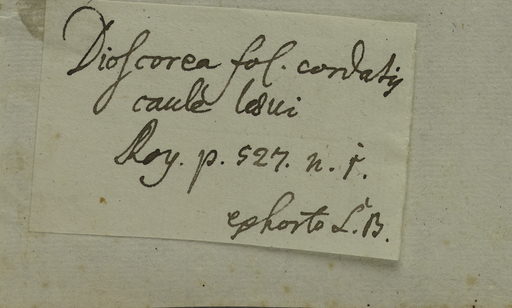 Dioscorea fol. cordatis
caule lævi
Roy. p. 527. n. 1.
ex horto L. B.